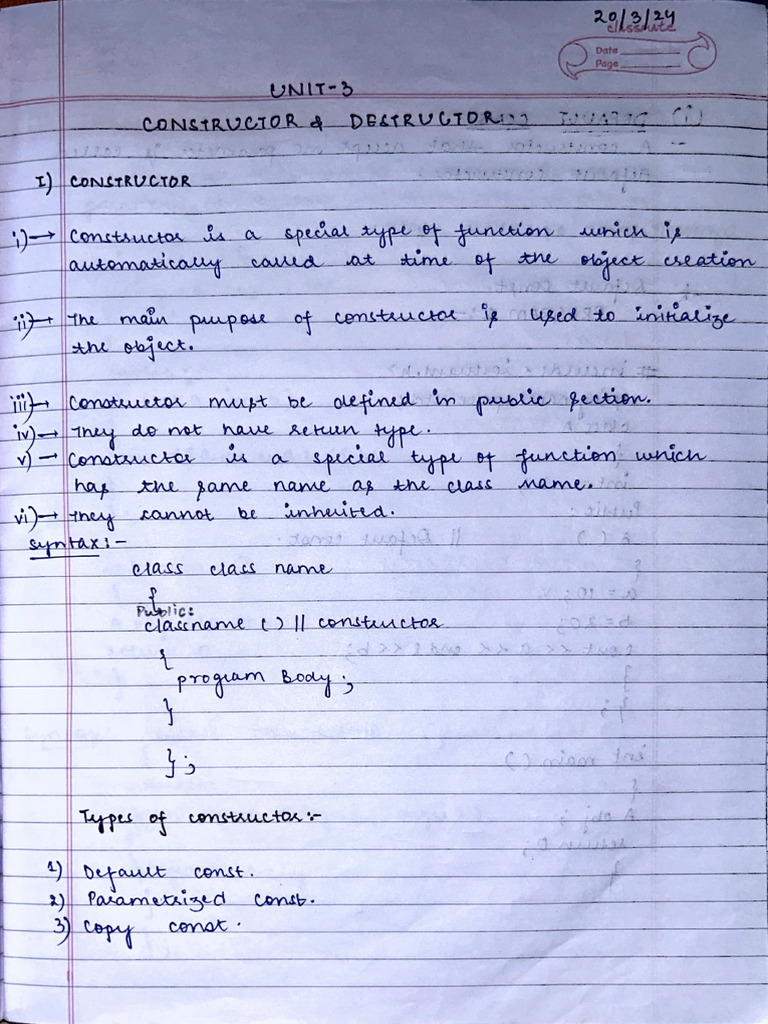 20/3/24
classmate
Date
Page
UNIT-3
CONSTRUCTOR & DESTRUCTOR
I) CONSTRUCTOR
i)→ Constructor is a special type of function which is
automatically called at time of the object creation
ii)→ The main purpose of constructor is used to initialize
the object.
iii)→ Constructor must be defined in public section.
iv)→ They do not have return type.
v)→ Constructor is a special type of function which
has the same name as the class name.
vi)→ They cannot be inherited.
Syntax:-
class class name
{
Public:
classname () || constructor
{
program Body;
}
};
Types of constructor:-
1) Default const.
2) Parametrized const.
3) Copy const.